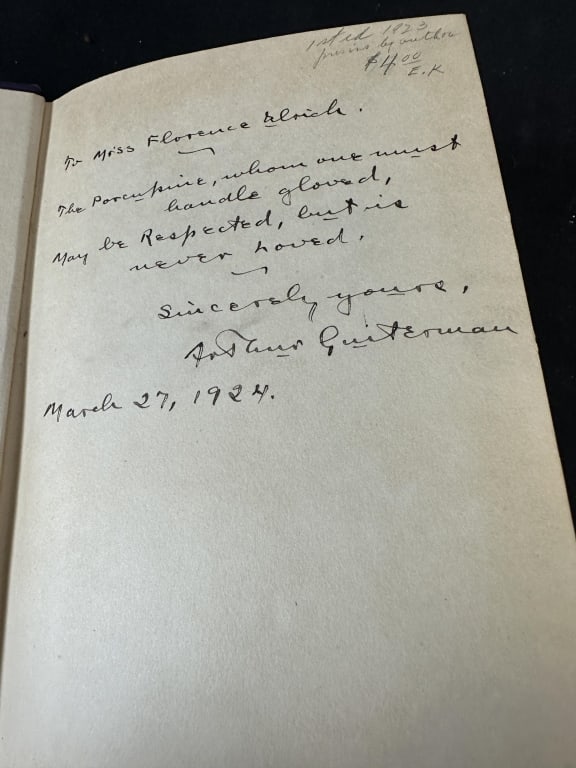 1st ed 1923
by author
$4.00
E.K
To Miss Florence Ulrich.
The Porcupine, whom one must
handle gloved,
May be Respected, but is
never Loved.
Sincerely yours,
Arthur Guiterman
March 27, 1924.